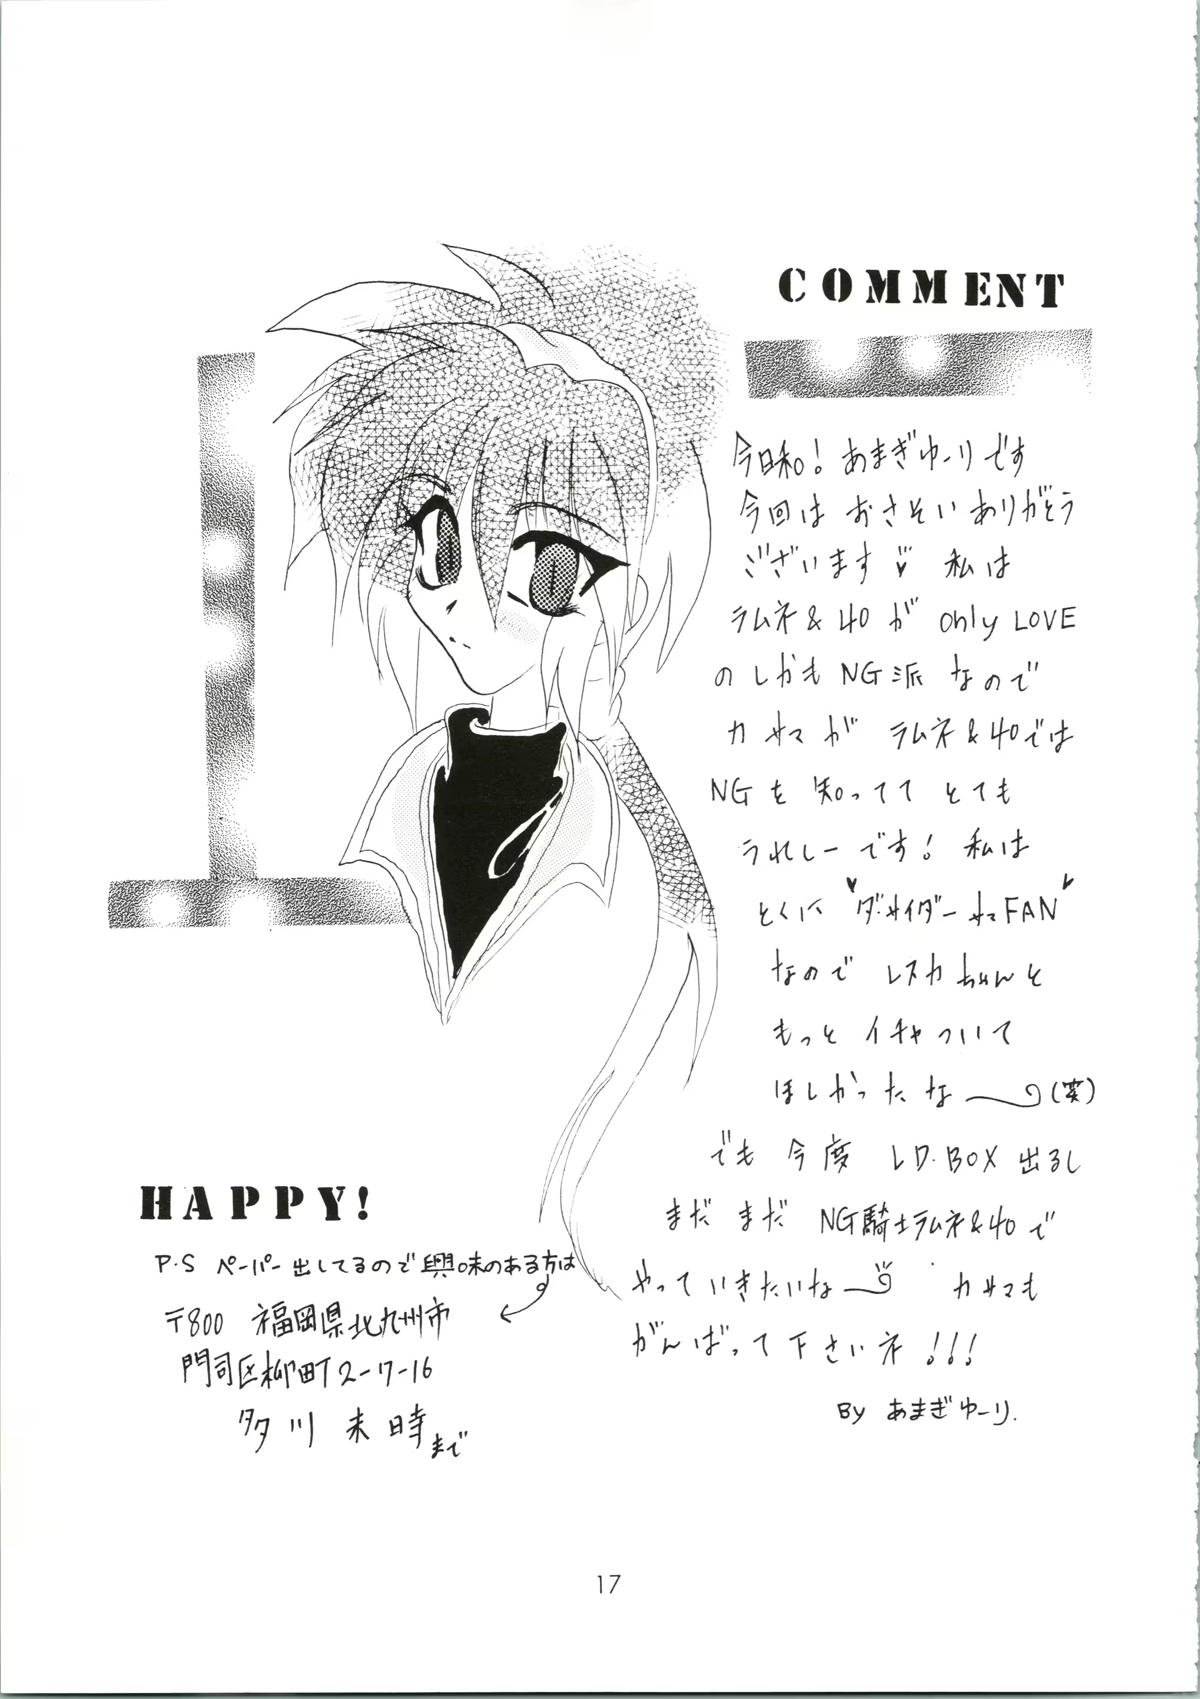 COMMENT
今日和! あまぎゆーりです
今回は おさそい ありがとう
ございます♥ 私は
ラムネ&40が only LOVE
の しかも NG派 なので
カサマが ラムネ&40では
NGを 知ってて とても
うれしーです! 私は
とくに "ダ・サイダーさまFAN"
なので レスカちゃんと
もっと イチャついて
ほしかったな〜(笑)
でも 今度 LD.BOX 出るし
まだ まだ NG騎士ラムネ&40で
やって いきたいな〜 カサマも
がんばって 下さいネ!!!
By あまぎゆーり.
HAPPY!
P.S ペーパー出してるので興味のある方は
〒800 福岡県北九州市
門司区柳町2-7-16
多川 未時まで
17